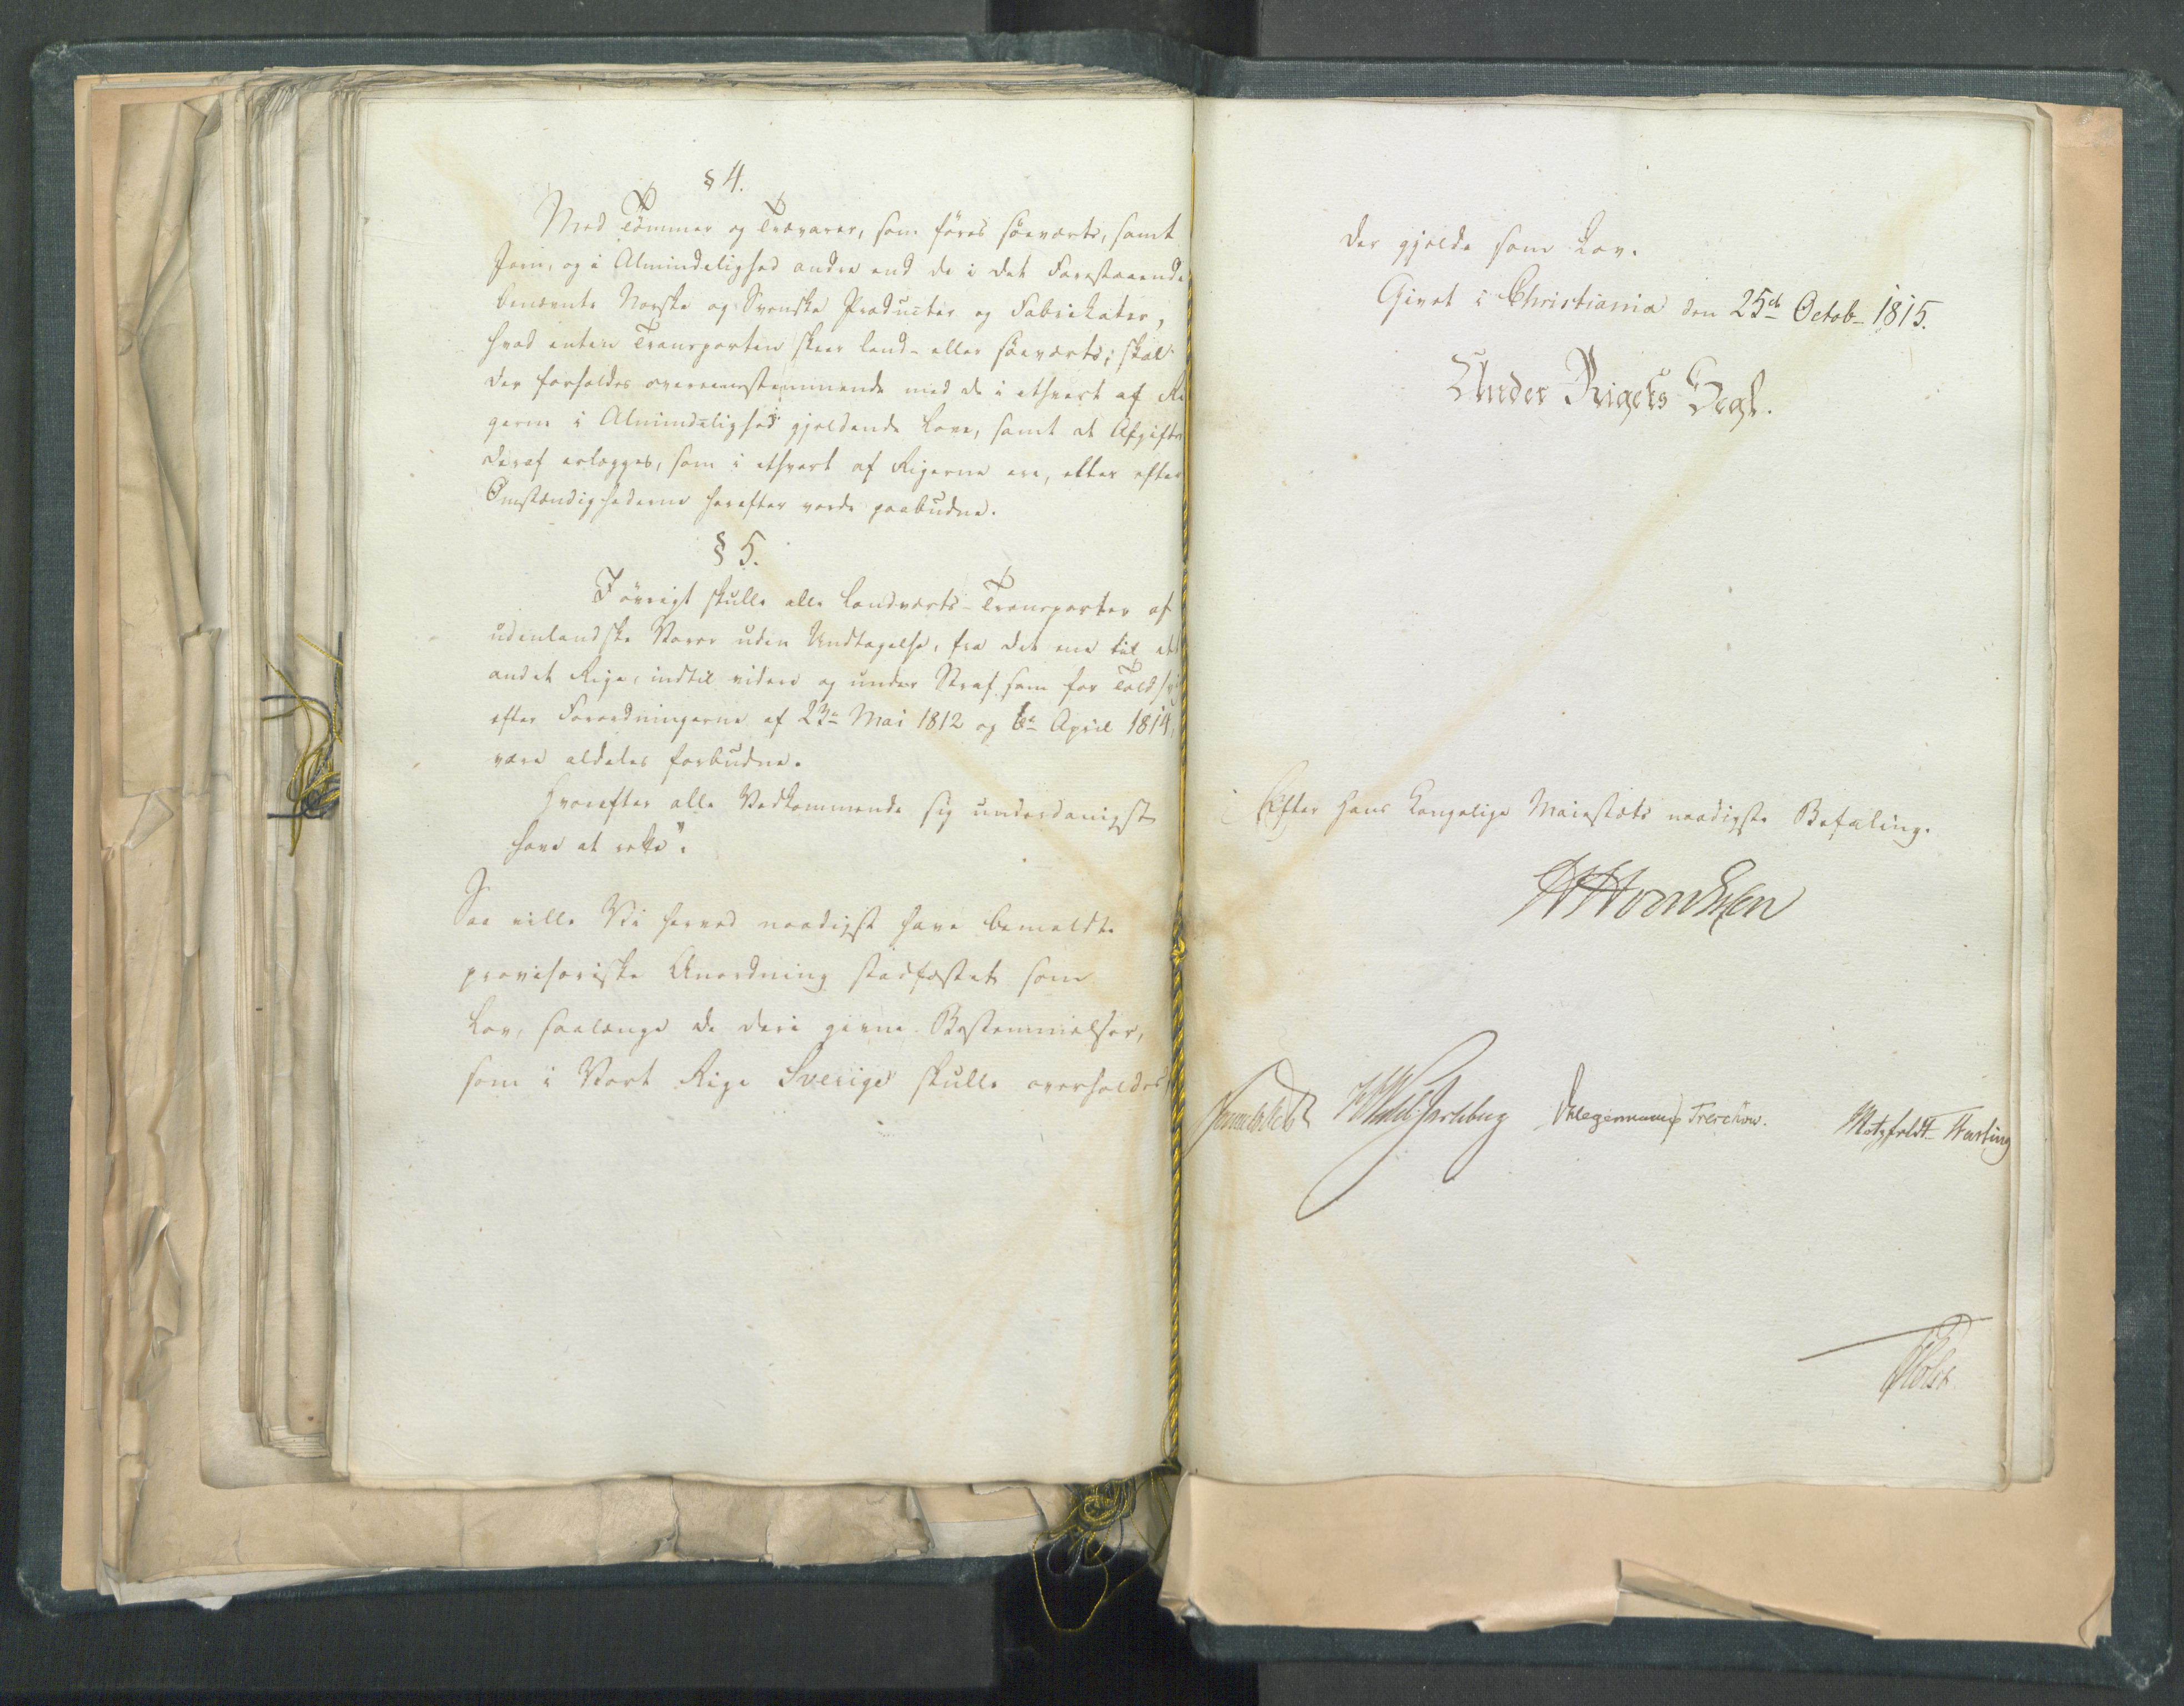 § 4.
Med Tømmer og Trævarer, som føres søeværts, samt
Jern, og i Almindelighed andre end de i det Forestaaende
benævnte Norske og Svenske Producter og Fabrikater,
hvad enten Transporten skeer land- eller søeværts, skal
der forholdes overeensstemmende med de i ethvert af Ri
gerne i Almindelighed gjeldende Love, samt de Afgifter
deraf erlægges, som i ethvert af Rigerne ere, eller efter
Omstændighederne herefter vorde paabudne.
§ 5.
I øvrigt skulle alle Landværts-Transporter af
udenlandske Varer uden Undtagelse, fra det ene til det
andet Rige, indtil videre og under Straf som for Told
efter Forordningerne af 23de Mai 1812 og 6te April 1814,
være aldeles forbudne.
Hvorefter alle Vedkommende sig underdanigst
have at rette".
Saa ville Vi herved naadigst have bemeldte
provisoriske Anordning stadfæstet som
Lov, saalænge de deri givne Bestemmelser,
som i Vort Rige Sverige skulle overholdes,
der gjelde som Lov.
Givet i Christiania den 25de Octob- 1815.
Under Rigets Segl.
Efter Hans Kongelige Maiestæts naadigste Befaling.
Sommerhielm Wedel-Jarlsberg Diriks Treschow. Motzfeldt Hasting
Holst